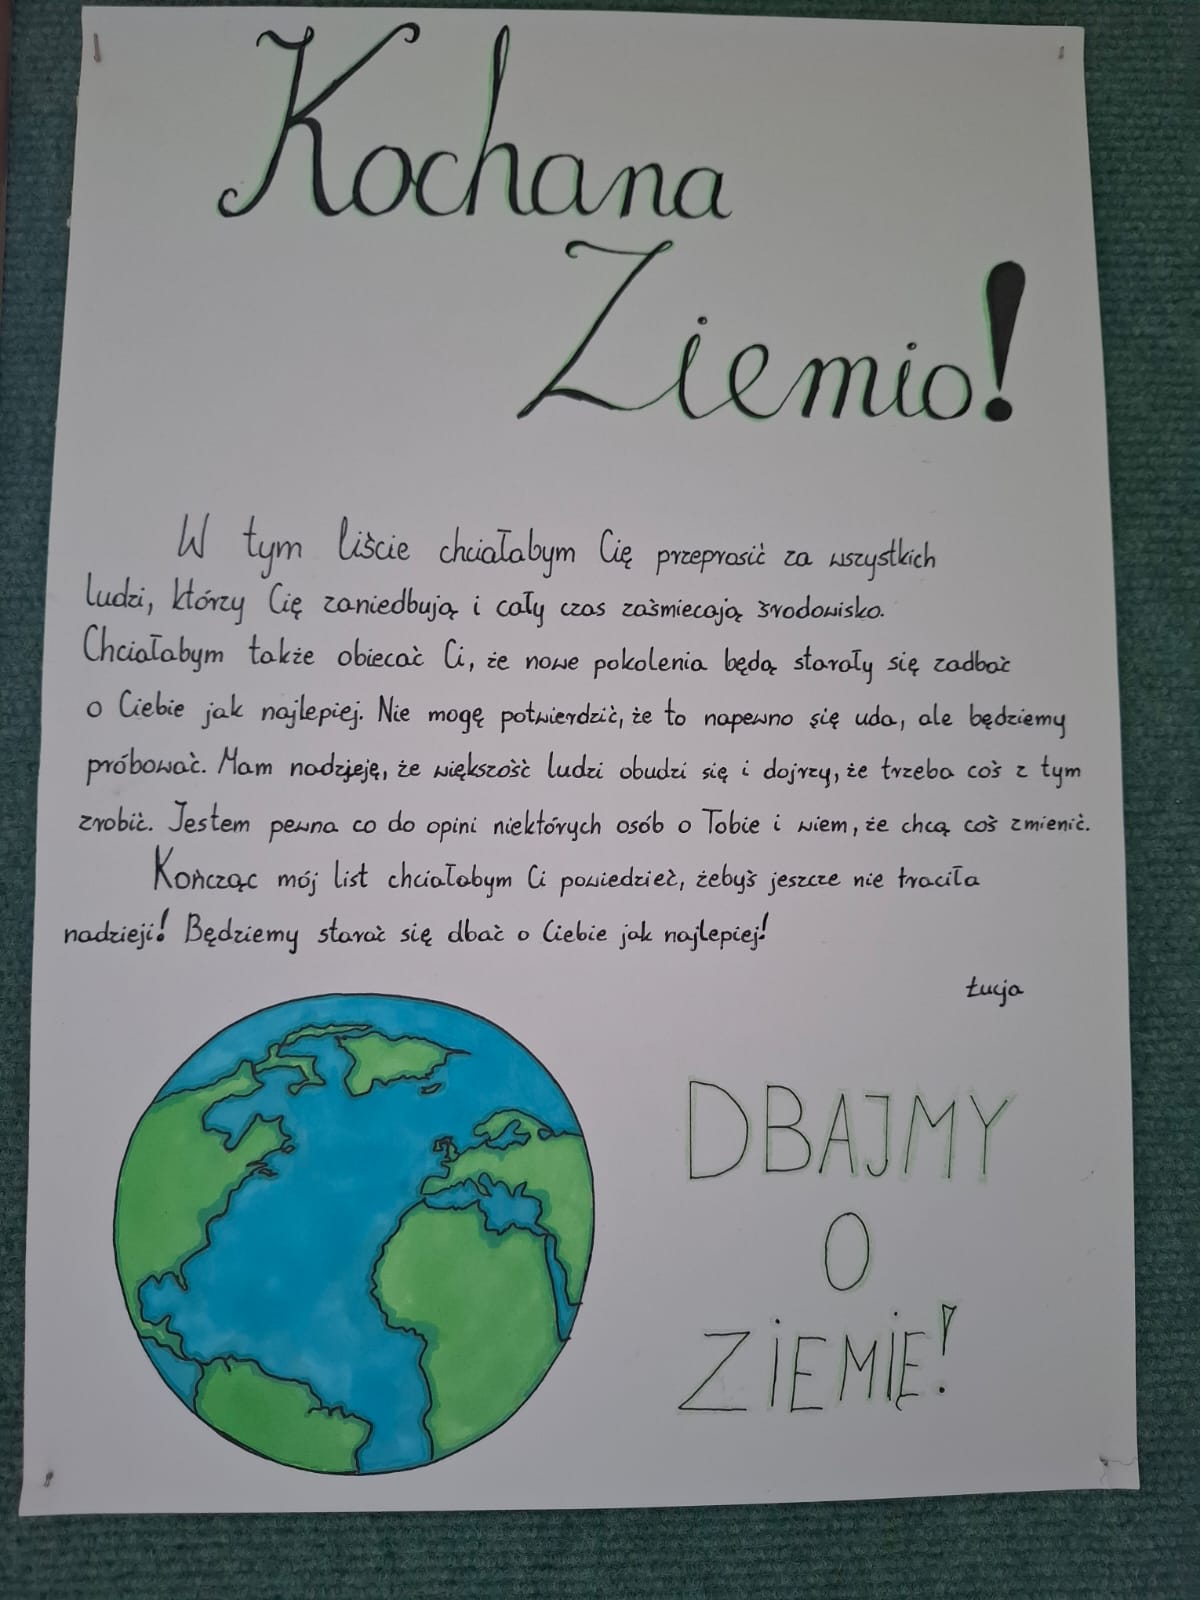 Kochana
Ziemio!
W tym liście chciałabym Cię przeprosić za wszystkich
ludzi, którzy Cię zaniedbują i cały czas zaśmiecają środowisko.
Chciałabym także obiecać Ci, że nowe pokolenia będą starały się zadbać
o Ciebie jak najlepiej. Nie mogę potwierdzić, że to napewno się uda, ale będziemy
próbować. Mam nadzieję, że większość ludzi obudzi się i dojrzy, że trzeba coś z tym
zrobić. Jestem pewna co do opini niektórych osób o Tobie i wiem, że chcą coś zmienić.
Kończąc mój list chciałabym Ci powiedzieć, żebyś jeszcze nie traciła
nadzieji! Będziemy starać się dbać o Ciebie jak najlepiej!
Łucja
DBAJMY
O
ZIEMIĘ!